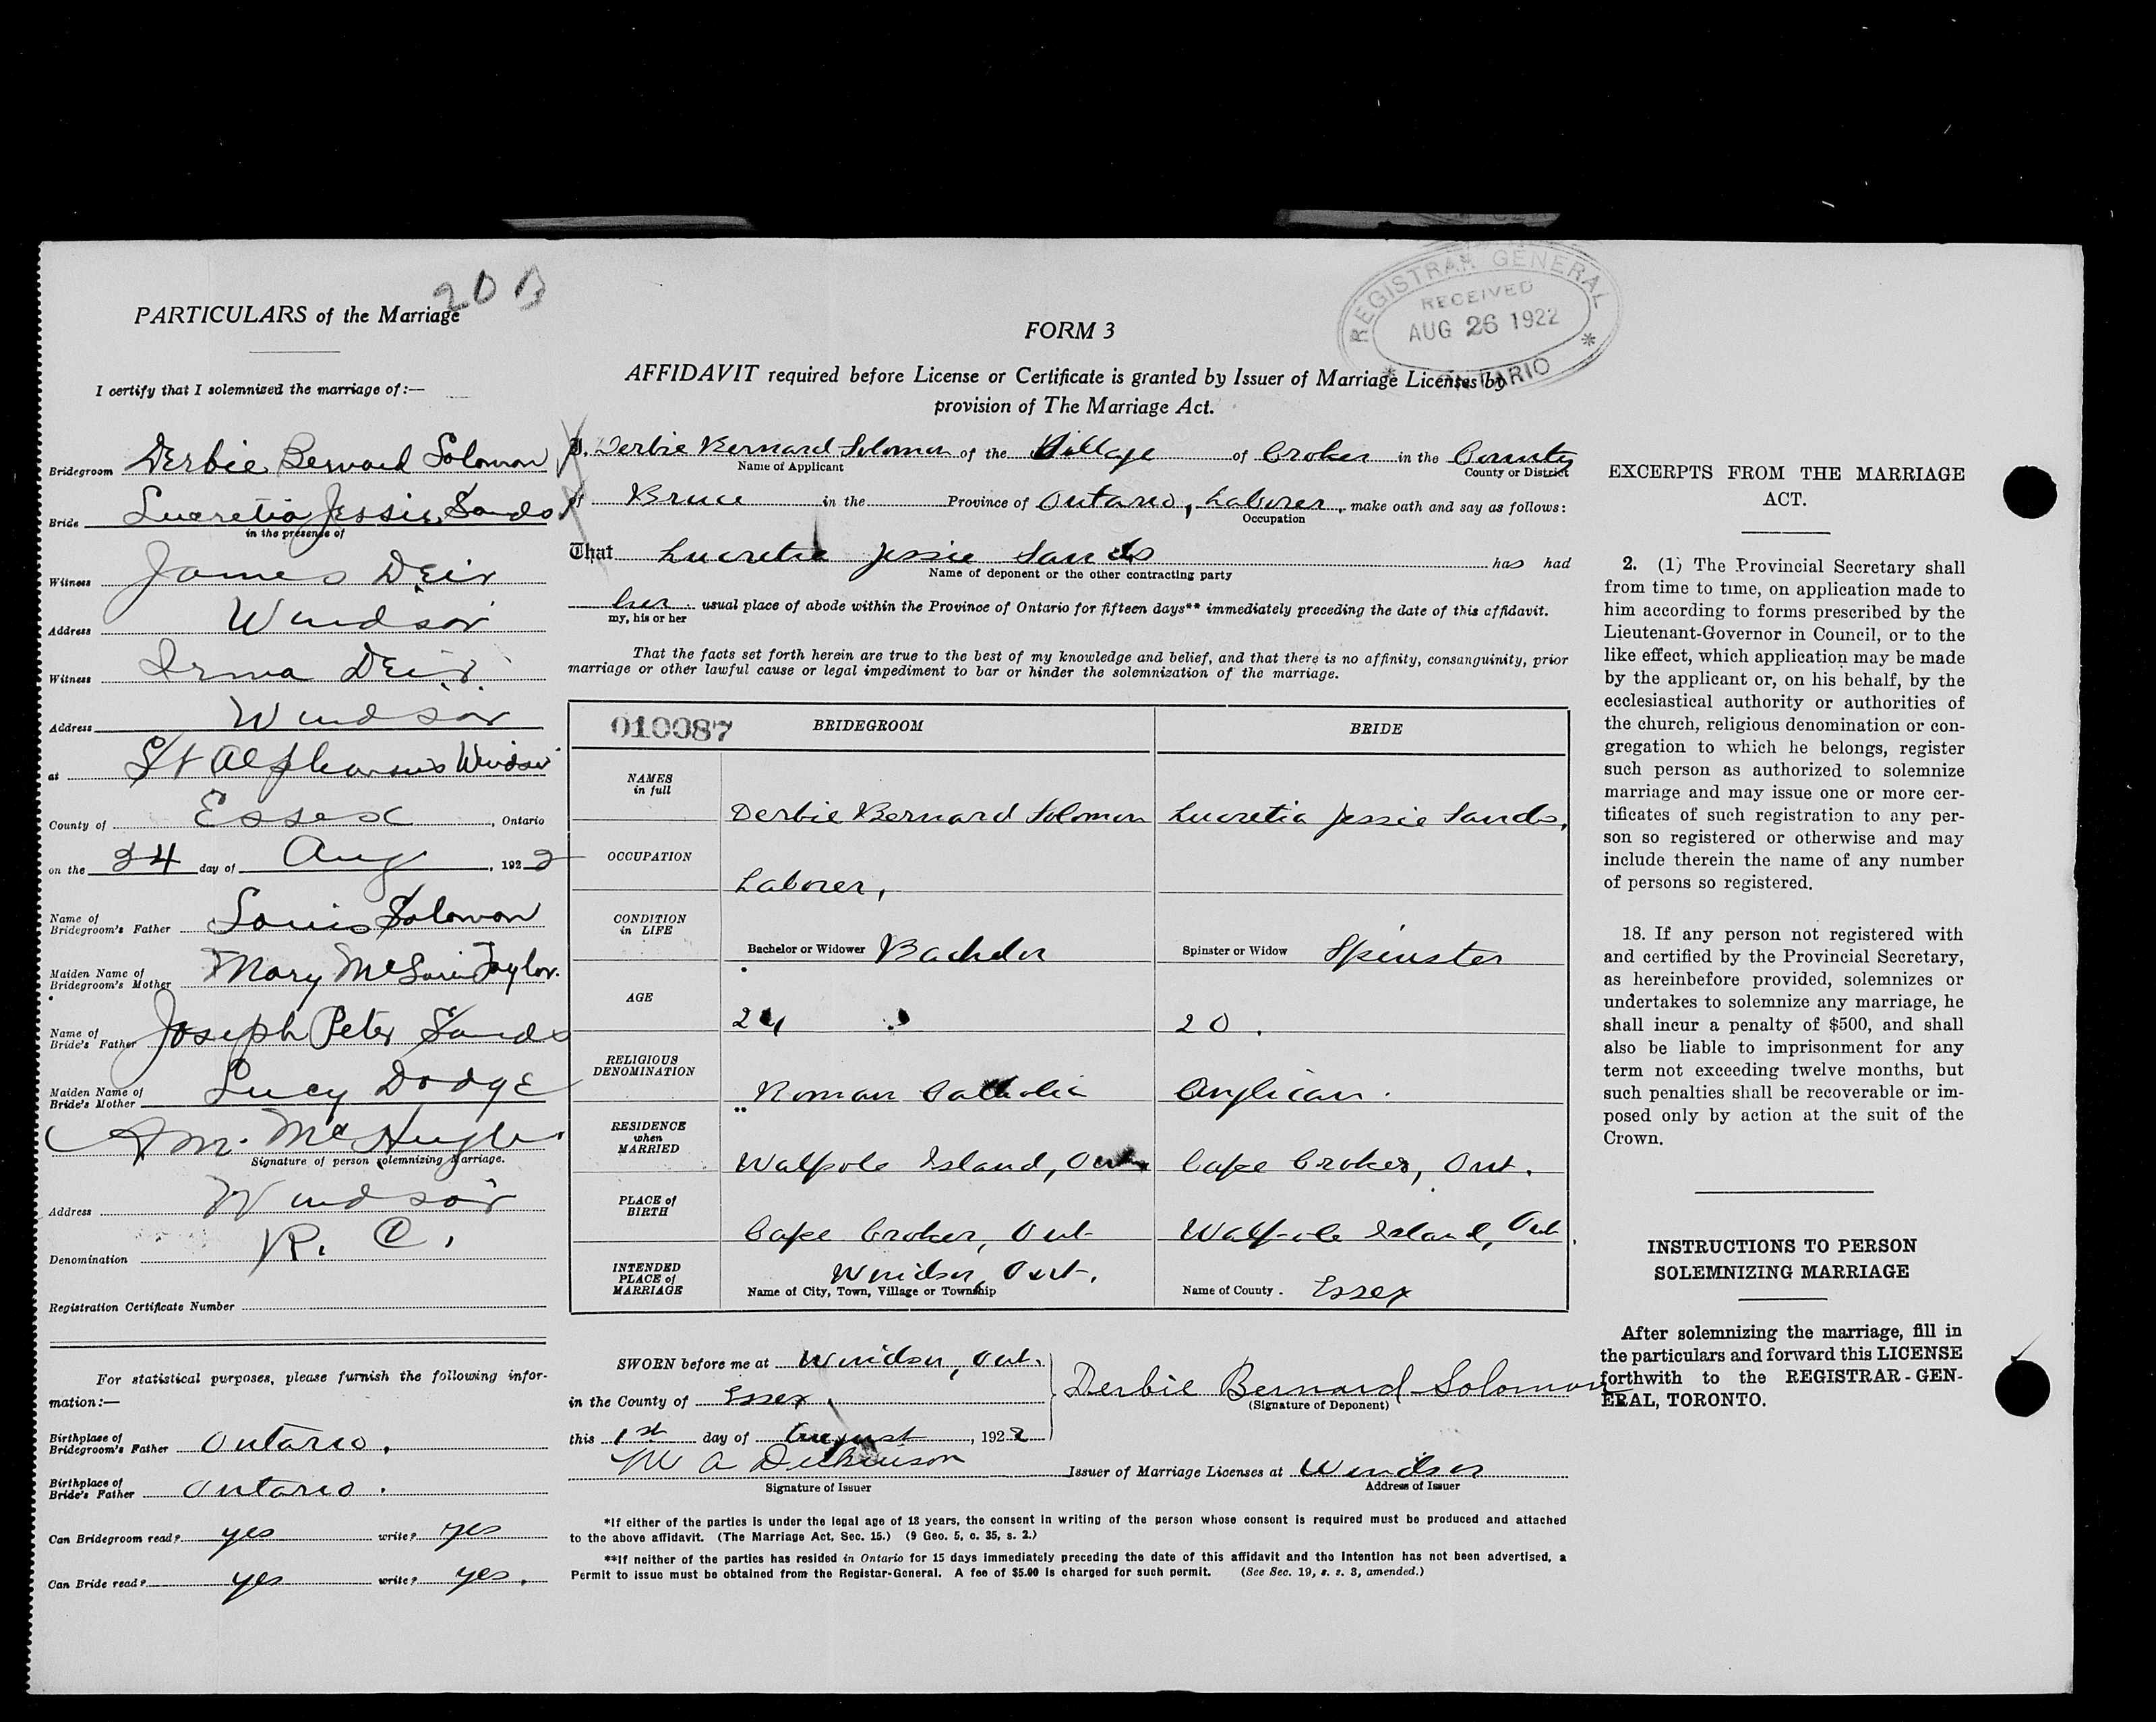 20
PARTICULARS of the Marriage
I certify that I solemnized the marriage of:—
Bridegroom Derbie Bernard Solomon
Bride Lucretia Jessie Sands
in the presence of
Witness James Deir
Address Windsor
Witness Irma Deir
Address Windsor
at St Alphonsus Windsor
County of Essex, Ontario
on the 24 day of Aug, 1922
Name of
Bridegroom's Father Louis Solomon
Maiden Name of
Bridegroom's Mother Mary Taylor.
Name of
Bride's Father Joseph Peter Sands
Maiden Name of
Bride's Mother Lucy Dodge
A M. McHugh
Signature of person solemnizing Marriage.
Address Windsor
Denomination R. C.
Registration Certificate Number
For statistical purposes, please furnish the following infor-
mation:—
Birthplace of
Bridegroom's Father Ontario.
Birthplace of
Bride's Father Ontario.
Can Bridegroom read? yes write? yes
Can Bride read? yes write? yes.
REGISTRAR GENERAL
RECEIVED
AUG 26 1922
ONTARIO
FORM 3
AFFIDAVIT required before License or Certificate is granted by Issuer of Marriage Licenses by
provision of The Marriage Act.
I, Derbie Bernard Solomon of the Village of Croker in the County
Name of Applicant County or District
of Bruce in the Province of Ontario, Laborer, make oath and say as follows:
Occupation
That Lucretia Jessie Sands has had
Name of deponent or the other contracting party
her usual place of abode within the Province of Ontario for fifteen days** immediately preceding the date of this affidavit.
my, his or her
That the facts set forth herein are true to the best of my knowledge and belief, and that there is no affinity, consanguinity, prior
marriage or other lawful cause or legal impediment to bar or hinder the solemnization of the marriage.
010087 BRIDEGROOM BRIDE
NAMES
in full
Derbie Bernard Solomon Lucretia Jessie Sands.
OCCUPATION
Laborer,
CONDITION
in LIFE
Bachelor or Widower Bachelor Spinster or Widow Spinster
AGE
24 20.
RELIGIOUS
DENOMINATION
Roman Catholic Anglican.
RESIDENCE
when
MARRIED
Walpole Island, Ont. Cape Croker, Ont.
PLACE of
BIRTH
Cape Croker, Ont Walpole Island, Ont.
INTENDED
PLACE of
MARRIAGE
Windsor, Ont.
Name of City, Town, Village or Township Name of County. Essex
SWORN before me at Windsor, Ont.
in the County of Essex
this 1st day of August, 1922
Derbie Bernard Solomon
(Signature of Deponent)
M A Dickinson Issuer of Marriage Licenses at Windsor
Signature of Issuer Address of Issuer
*If either of the parties is under the legal age of 18 years, the consent in writing of the person whose consent is required must be produced and attached
to the above affidavit. (The Marriage Act, Sec. 15.) (9 Geo. 5, c. 35, s. 2.)
**If neither of the parties has resided in Ontario for 15 days immediately preceding the date of this affidavit and the intention has not been advertised, a
Permit to issue must be obtained from the Registar-General. A fee of $5.00 is charged for such permit. (See Sec. 19, s. s. 3, amended.)
EXCERPTS FROM THE MARRIAGE
ACT.
2. (1) The Provincial Secretary shall
from time to time, on application made to
him according to forms prescribed by the
Lieutenant-Governor in Council, or to the
like effect, which application may be made
by the applicant or, on his behalf, by the
ecclesiastical authority or authorities of
the church, religious denomination or con-
gregation to which he belongs, register
such person as authorized to solemnize
marriage and may issue one or more cer-
tificates of such registration to any per-
son so registered or otherwise and may
include therein the name of any number
of persons so registered.
18. If any person not registered with
and certified by the Provincial Secretary,
as hereinbefore provided, solemnizes or
undertakes to solemnize any marriage, he
shall incur a penalty of $500, and shall
also be liable to imprisonment for any
term not exceeding twelve months, but
such penalties shall be recoverable or im-
posed only by action at the suit of the
Crown.
INSTRUCTIONS TO PERSON
SOLEMNIZING MARRIAGE
After solemnizing the marriage, fill in
the particulars and forward this LICENSE
forthwith to the REGISTRAR-GEN-
ERAL, TORONTO.